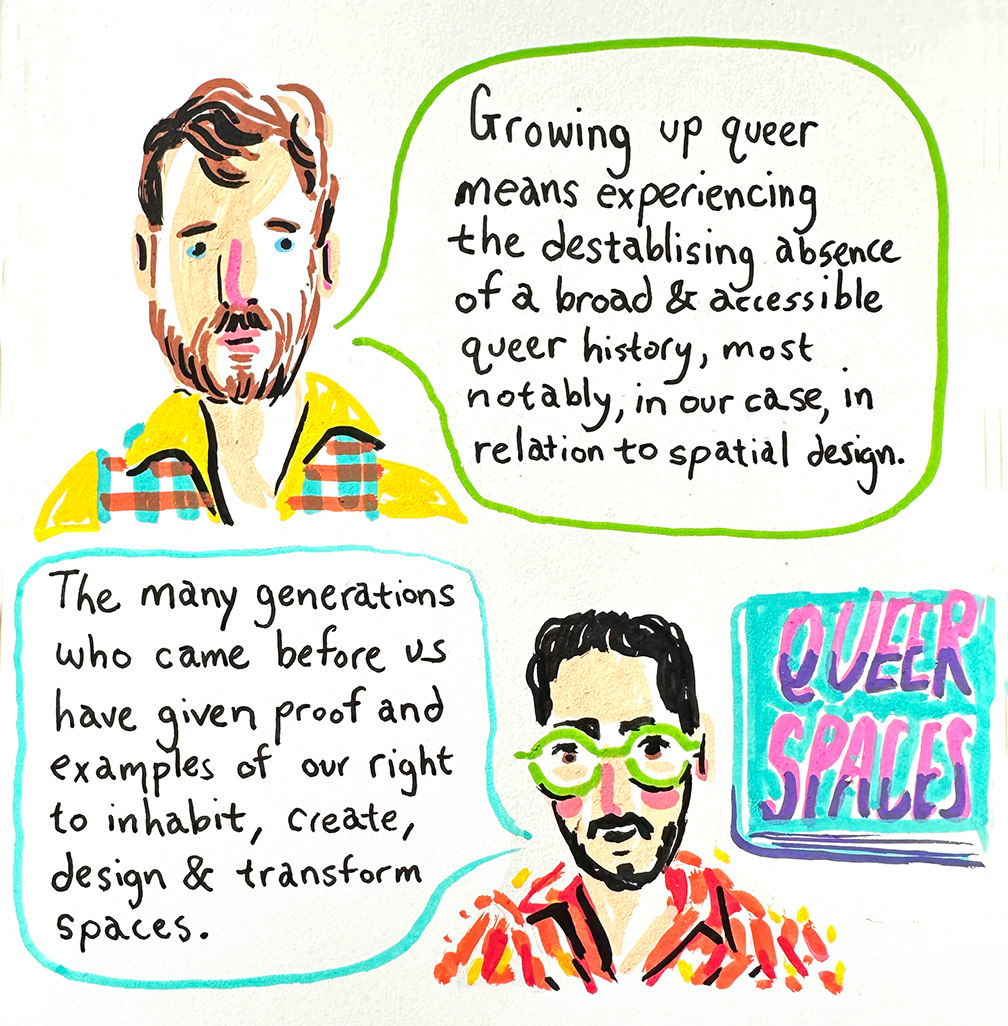 Growing up queer
means experiencing
the destablising absence
of a broad & accessible
queer history, most
notably, in our case, in
relation to spatial design.
The many generations
who came before us
have given proof and
examples of our right
to inhabit, create,
design & transform
spaces.
QUEER
SPACES